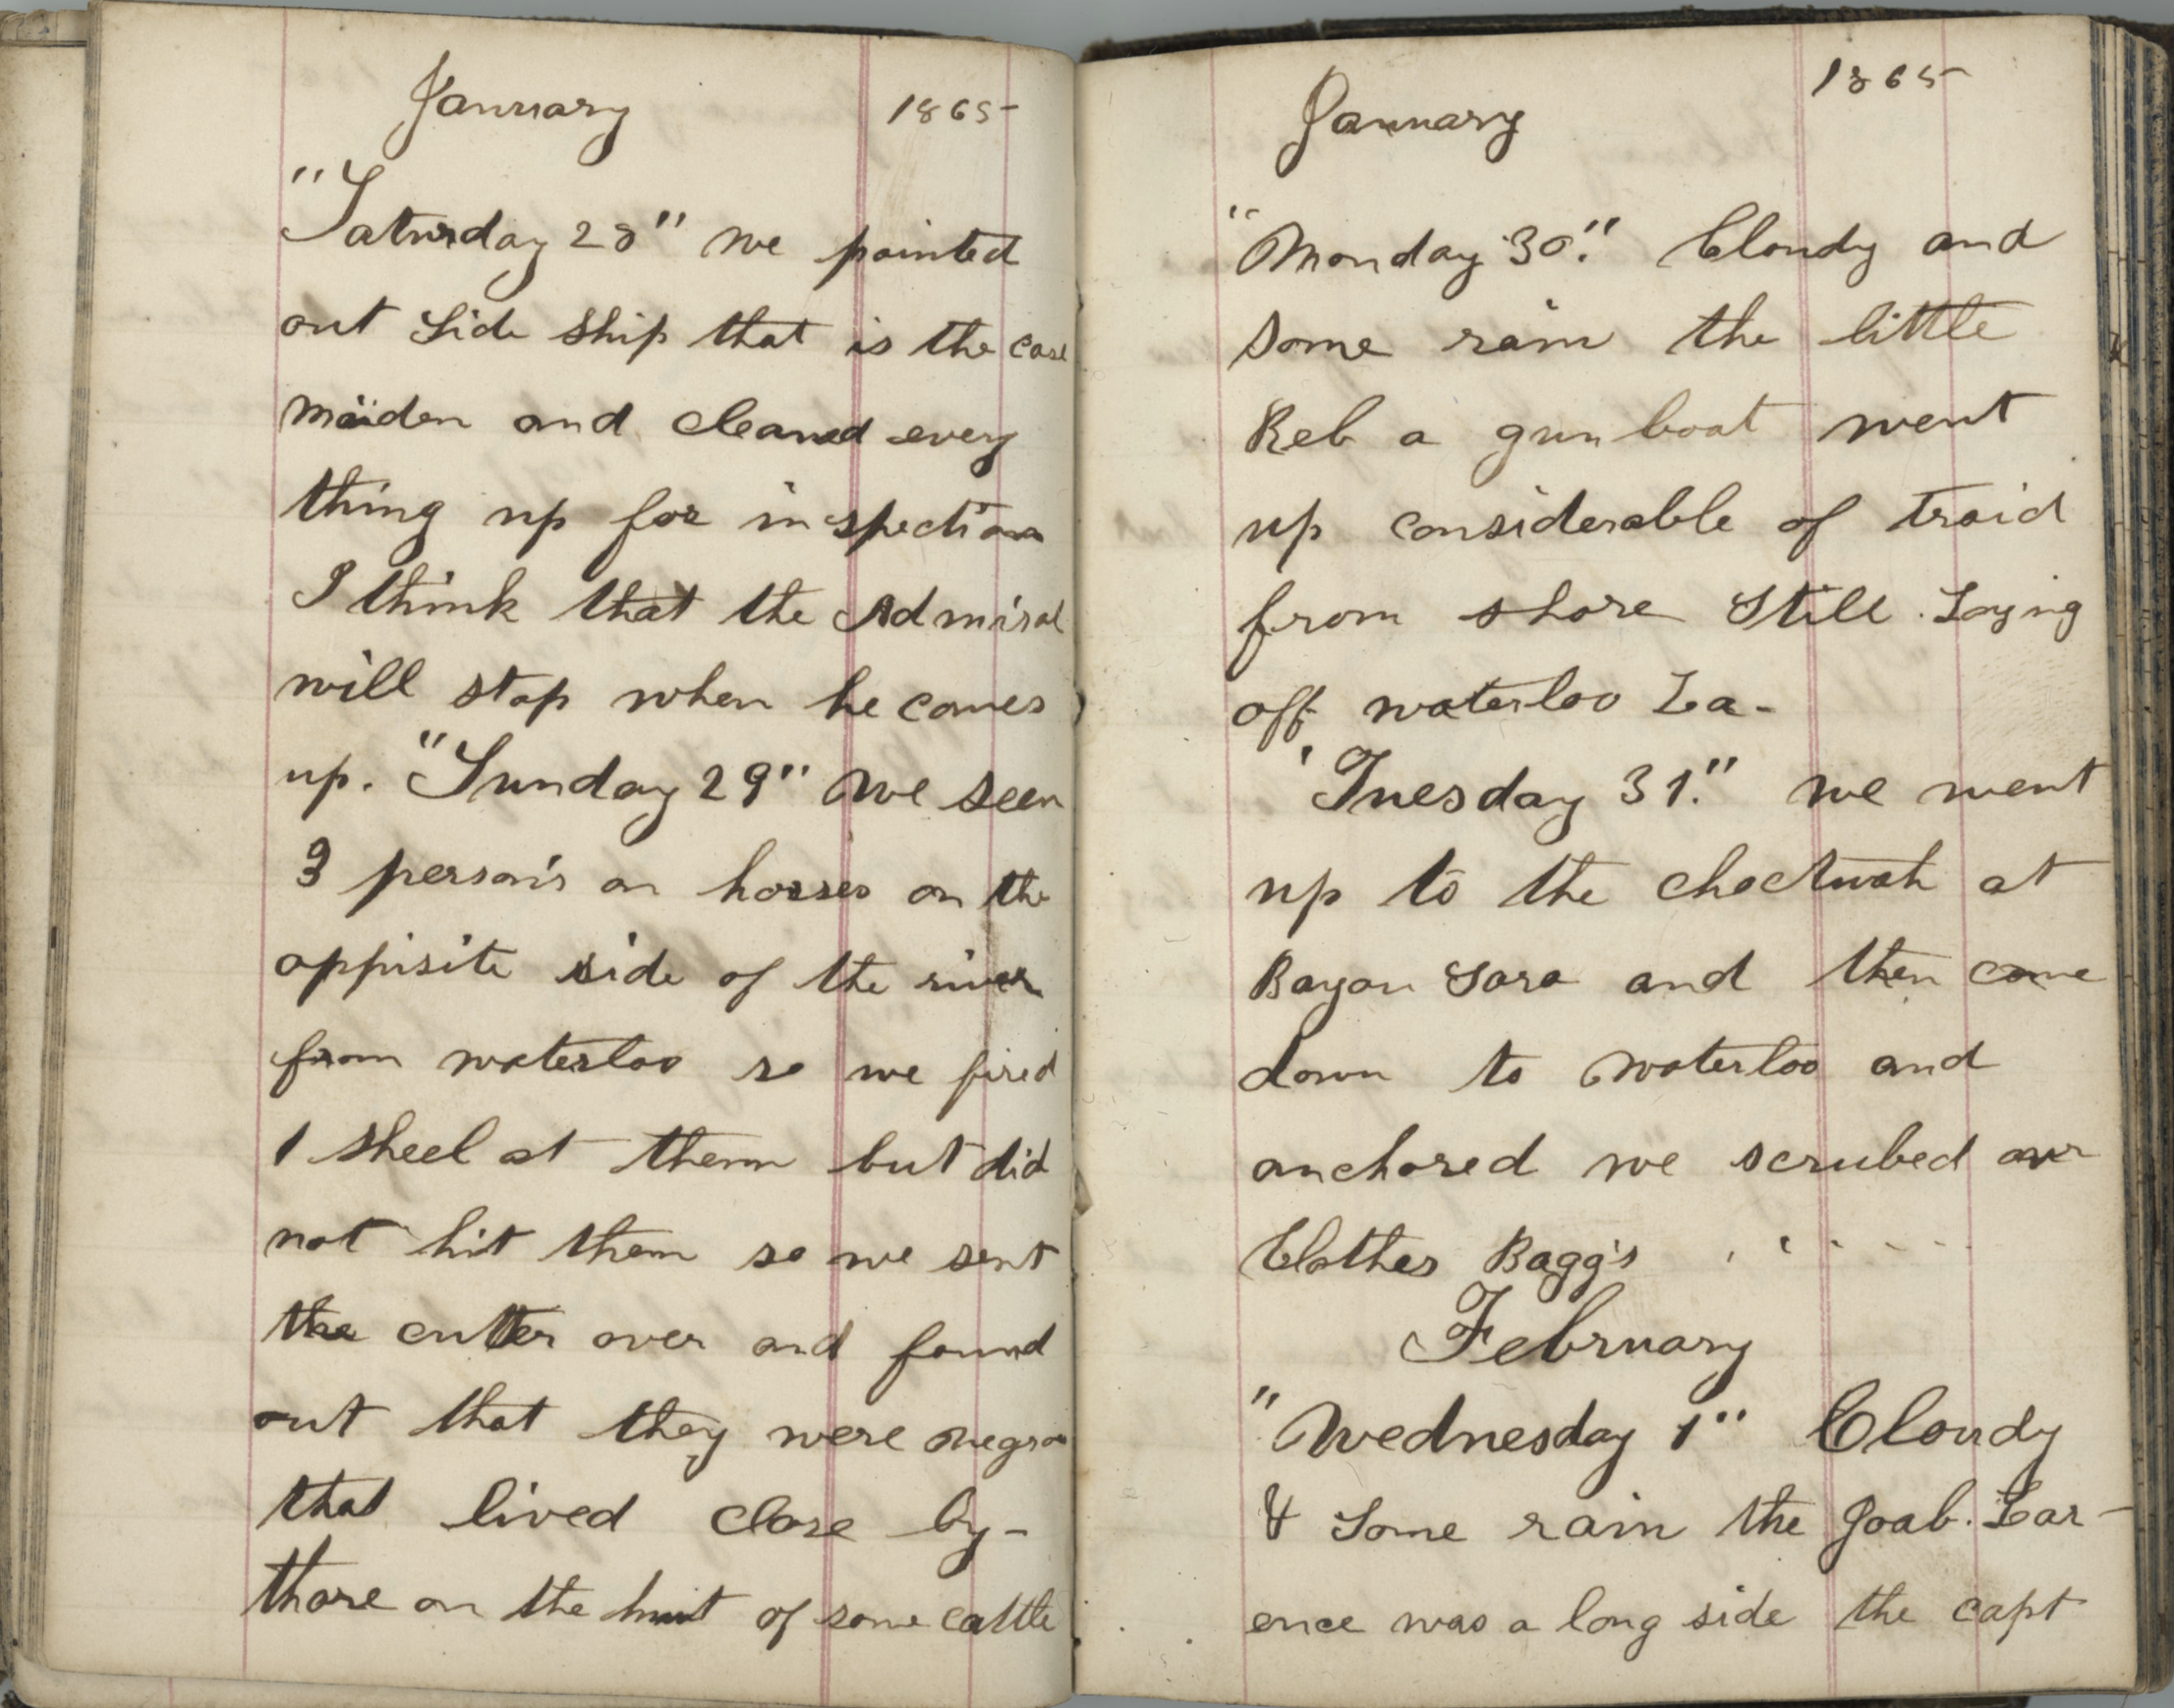 January 1865
"Saturday 28" we painted
out Side Ship that is the case
maiden and cleaned every
thing up for inspection
I think that the Admiral
will stop when he comes
up. "Sunday 29" we seen
3 person's on horses on the
oppisite side of the river
from waterloo so we fired
1 sheel at them but did
not hit them so we sent
the cutter over and found
out that they were negros
that lived close by-
thare on the hunt of some cattle
January 1865
"Monday 30." Cloudy and
some rain the little
Reb a gun boat went
up considerable of traid
from shore Still Laying
off waterloo La-
"Tuesday 31." we went
up to the choctwah at
Bayou Sara and then come
down to waterloo and
anchored we scrubed our
Clothes Bagg's
February
"Wednesday 1" Cloudy
& Some rain the Joab. Lar-
ence was a long side the capt